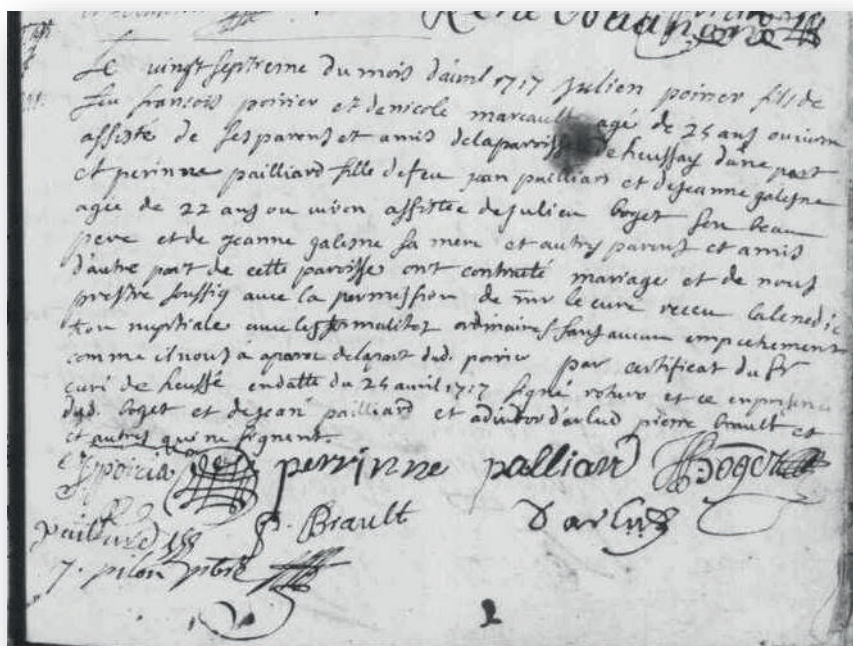 René
Le vingt septieme du mois d'avril 1717 Julien poirier fils de
feu francois poirier et de nicole marcault agé de 25 ans ou viron
assisté de ses parens et amis de la parroisse de heussay d'une part
et perinne pailliard fille de feu jean pailliard et de jeanne galesne
agee de 22 ans ou viron assistee de julien boget son beau
pere et de jeanne galesne sa mere et autres parens et amis
d'autre part de cette parroisse ont contracté mariage et de nous
prestre soussig avec la permission de mr le curé receu la benedic
tion nuptiale avec les formalitez ordinaires sans aucun empechement
comme il nous à aparu de la part dud. poirier par certificat du sr
curé de heussé en datte du 25 avril 1717 signé et ce en presence
dud. boget et de jean pailliard et d'arlud pierre brault et
et autres qui ne signent.
J poirier perrinne palliard Boget
pailliard P. Brault Darlud
J. pilon pbre